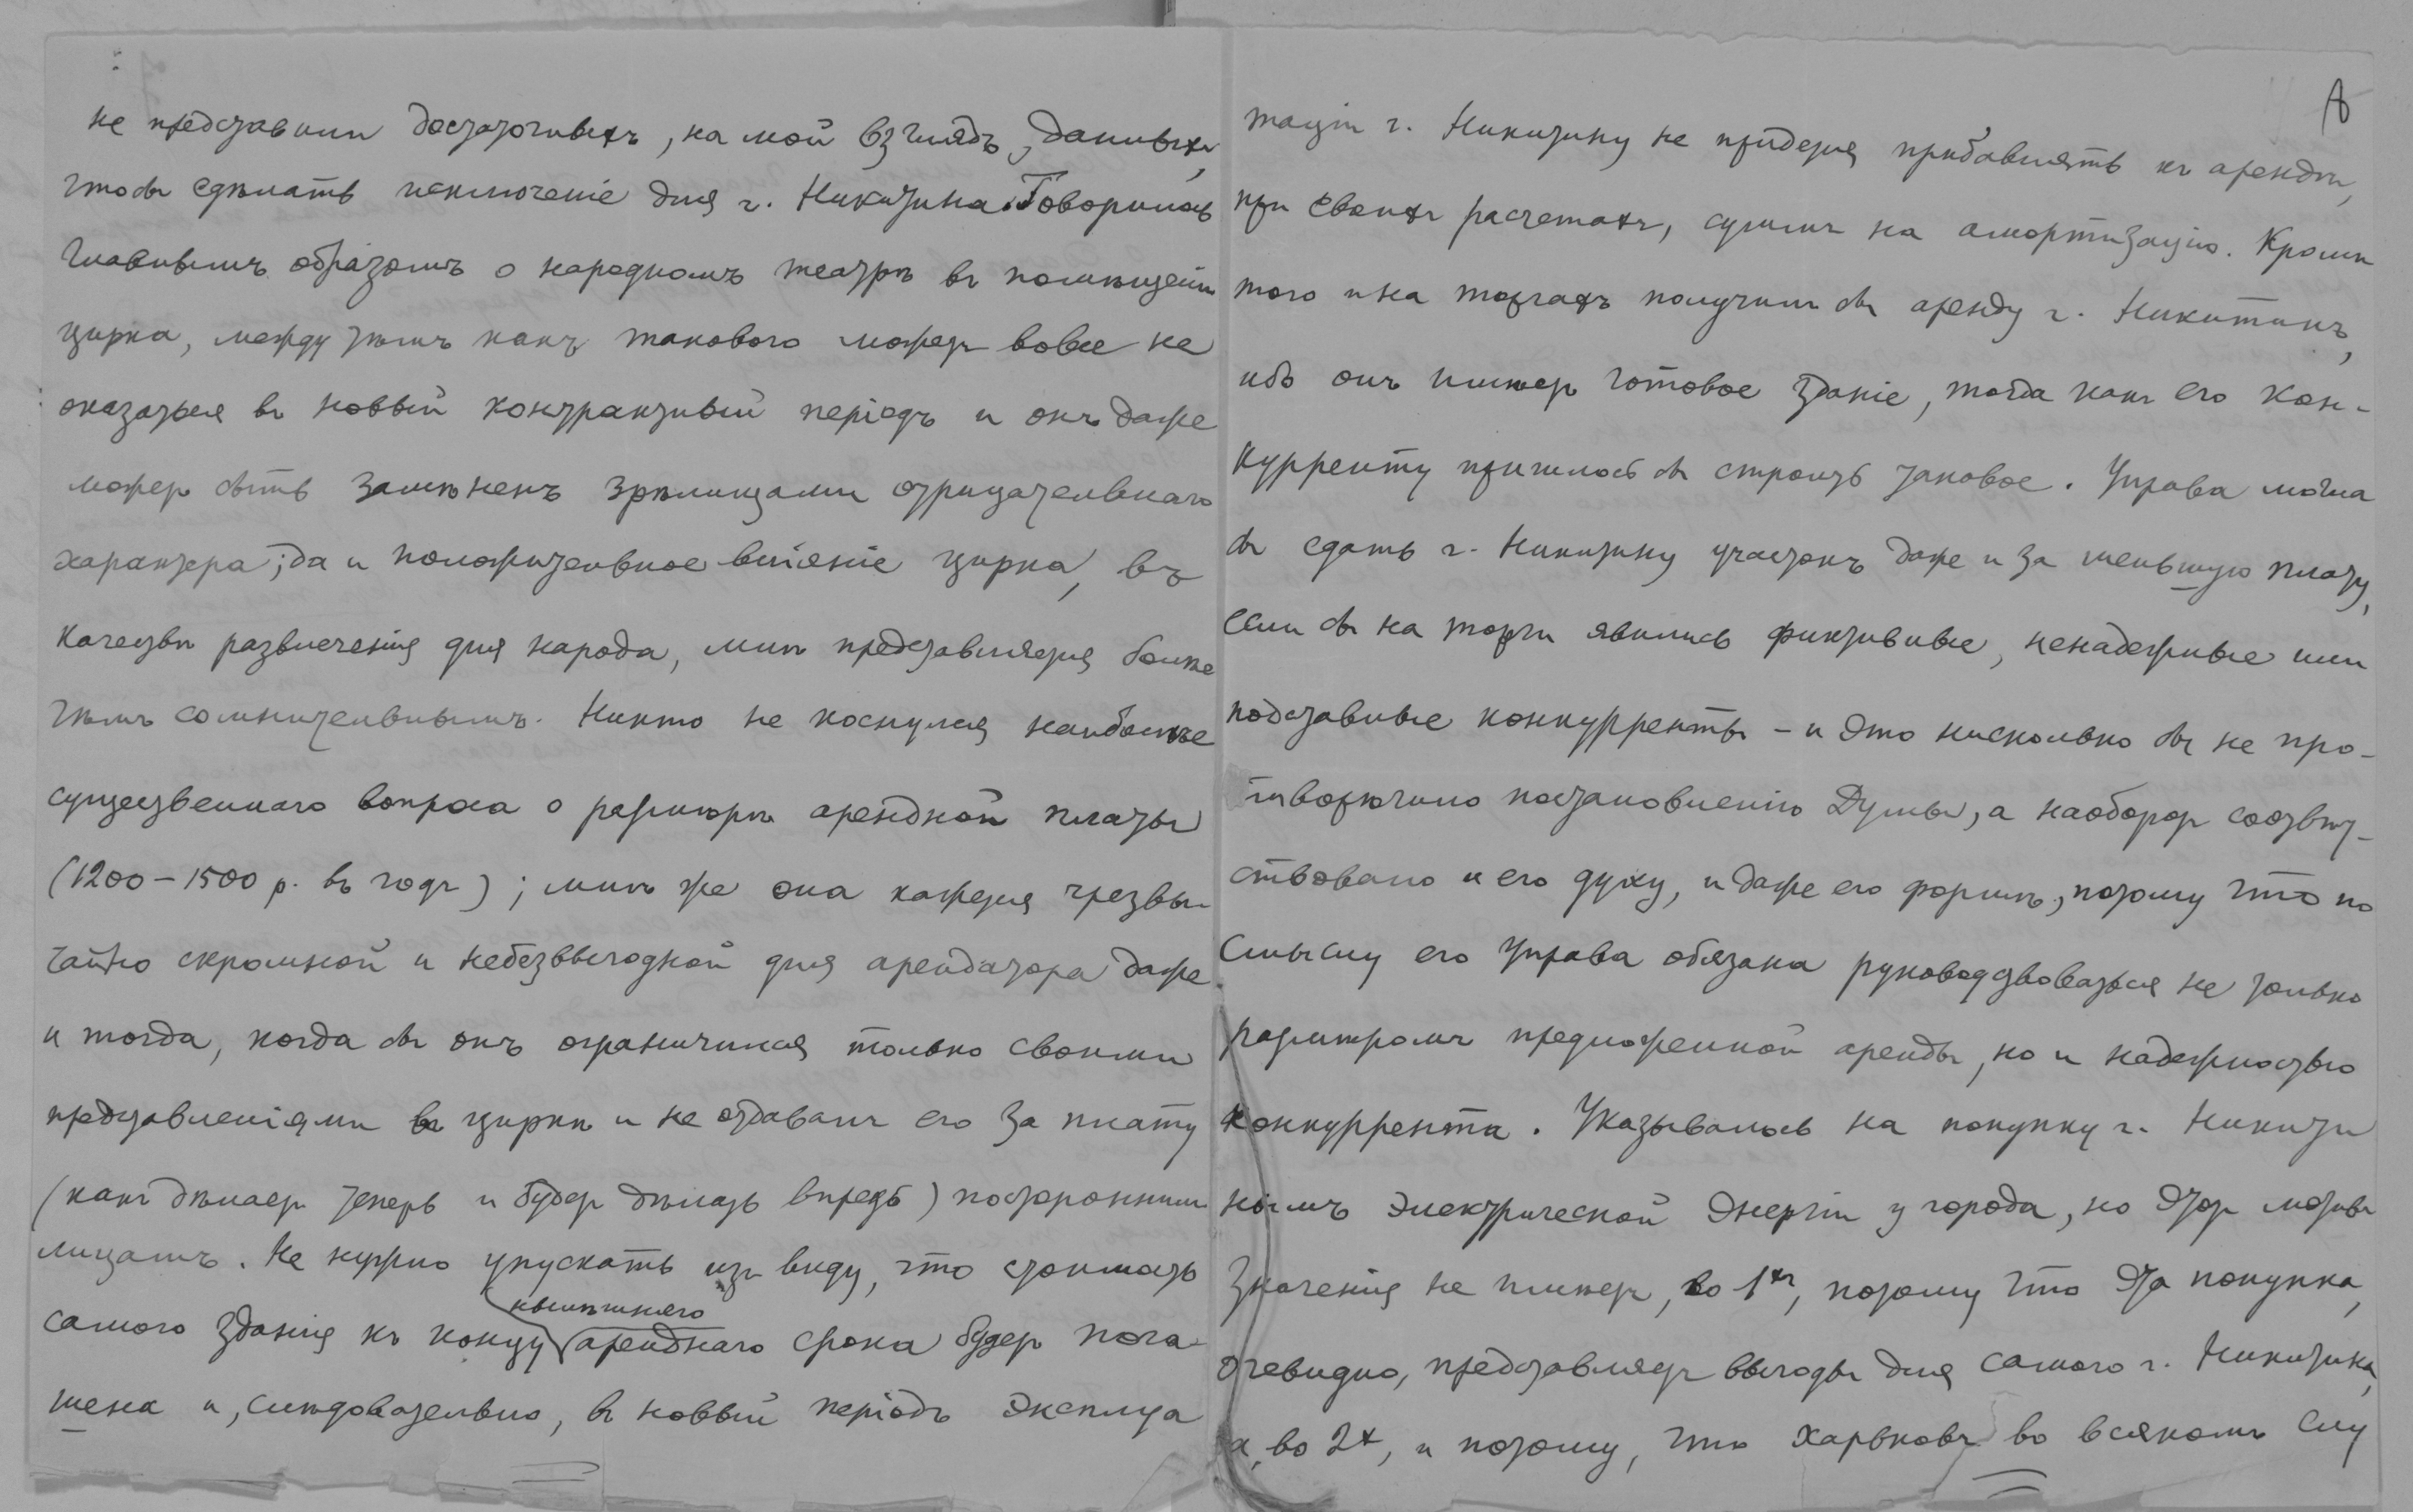 не представили достаточныхъ, на мой взглядъ, данныхъ,
чтобы сдѣлать исключеніе для г. Никитина. Говорилось
главнымъ образомъ о народномъ театрѣ въ помѣщеніи
цирка, между тѣмъ какъ такового можетъ вовсе не
оказаться въ новый контрактный періодъ и онъ даже
можетъ быть замѣненъ зрѣлищами отрицательнаго
характера; да и положительное вліяніе цирка, въ
качествѣ развлеченія для народа, мнѣ представляется болѣе
чѣмъ сомнительнымъ. Никто не коснулся наиболѣе
существеннаго вопроса о размѣрѣ арендной платы
(1200–1500 р. въ годъ); мнѣ же она кажется чрезвы-
чайно скромной и небезвыгодной для арендатора даже
и тогда, когда бы онъ ограничился только своими
представленіями въ циркѣ и не отдавалъ его за плату
(какъ дѣлаетъ теперь и будетъ дѣлать впредь) постороннимъ
лицамъ. Не нужно упускать изъ виду, что стоимость
нынѣшняго
самого зданія къ концу аренднаго срока будетъ пога-
шена и, слѣдовательно, въ новый періодъ эксплуа
8
таціи г. Никитину не придется прибавлять къ арендѣ,
при своихъ расчетахъ, суммъ на амортизацію. Кромѣ
того и на торгахъ получилъ бы аренду г. Никитинъ,
ибо онъ имѣетъ готовое зданіе, тогда какъ его кон-
курренту пришлось бы строить таковое. Управа могла
бы сдать г. Никитину участокъ даже и за меньшую плату,
если бы на торги явились фиктивные, ненадежные или
подставные конкурренты – и это нисколько бы не про-
тиворѣчило постановленію Думы, а наоборотъ соотвѣт-
ствовало и его духу, и даже его формѣ, потому что по
смыслу его Управа обязана руководствоваться не только
размѣромъ предложенной аренды, но и надежностью
конкуррента. Указывалось на покупку г. Никити
нымъ электрической энергіи у города, но этотъ мотивъ
значенія не имѣетъ, во 1хъ, потому что эта покупка,
очевидно, представляетъ выгоды для самого г. Никитина,
а, во 2х, и потому, что Харьковъ во всякомъ слу